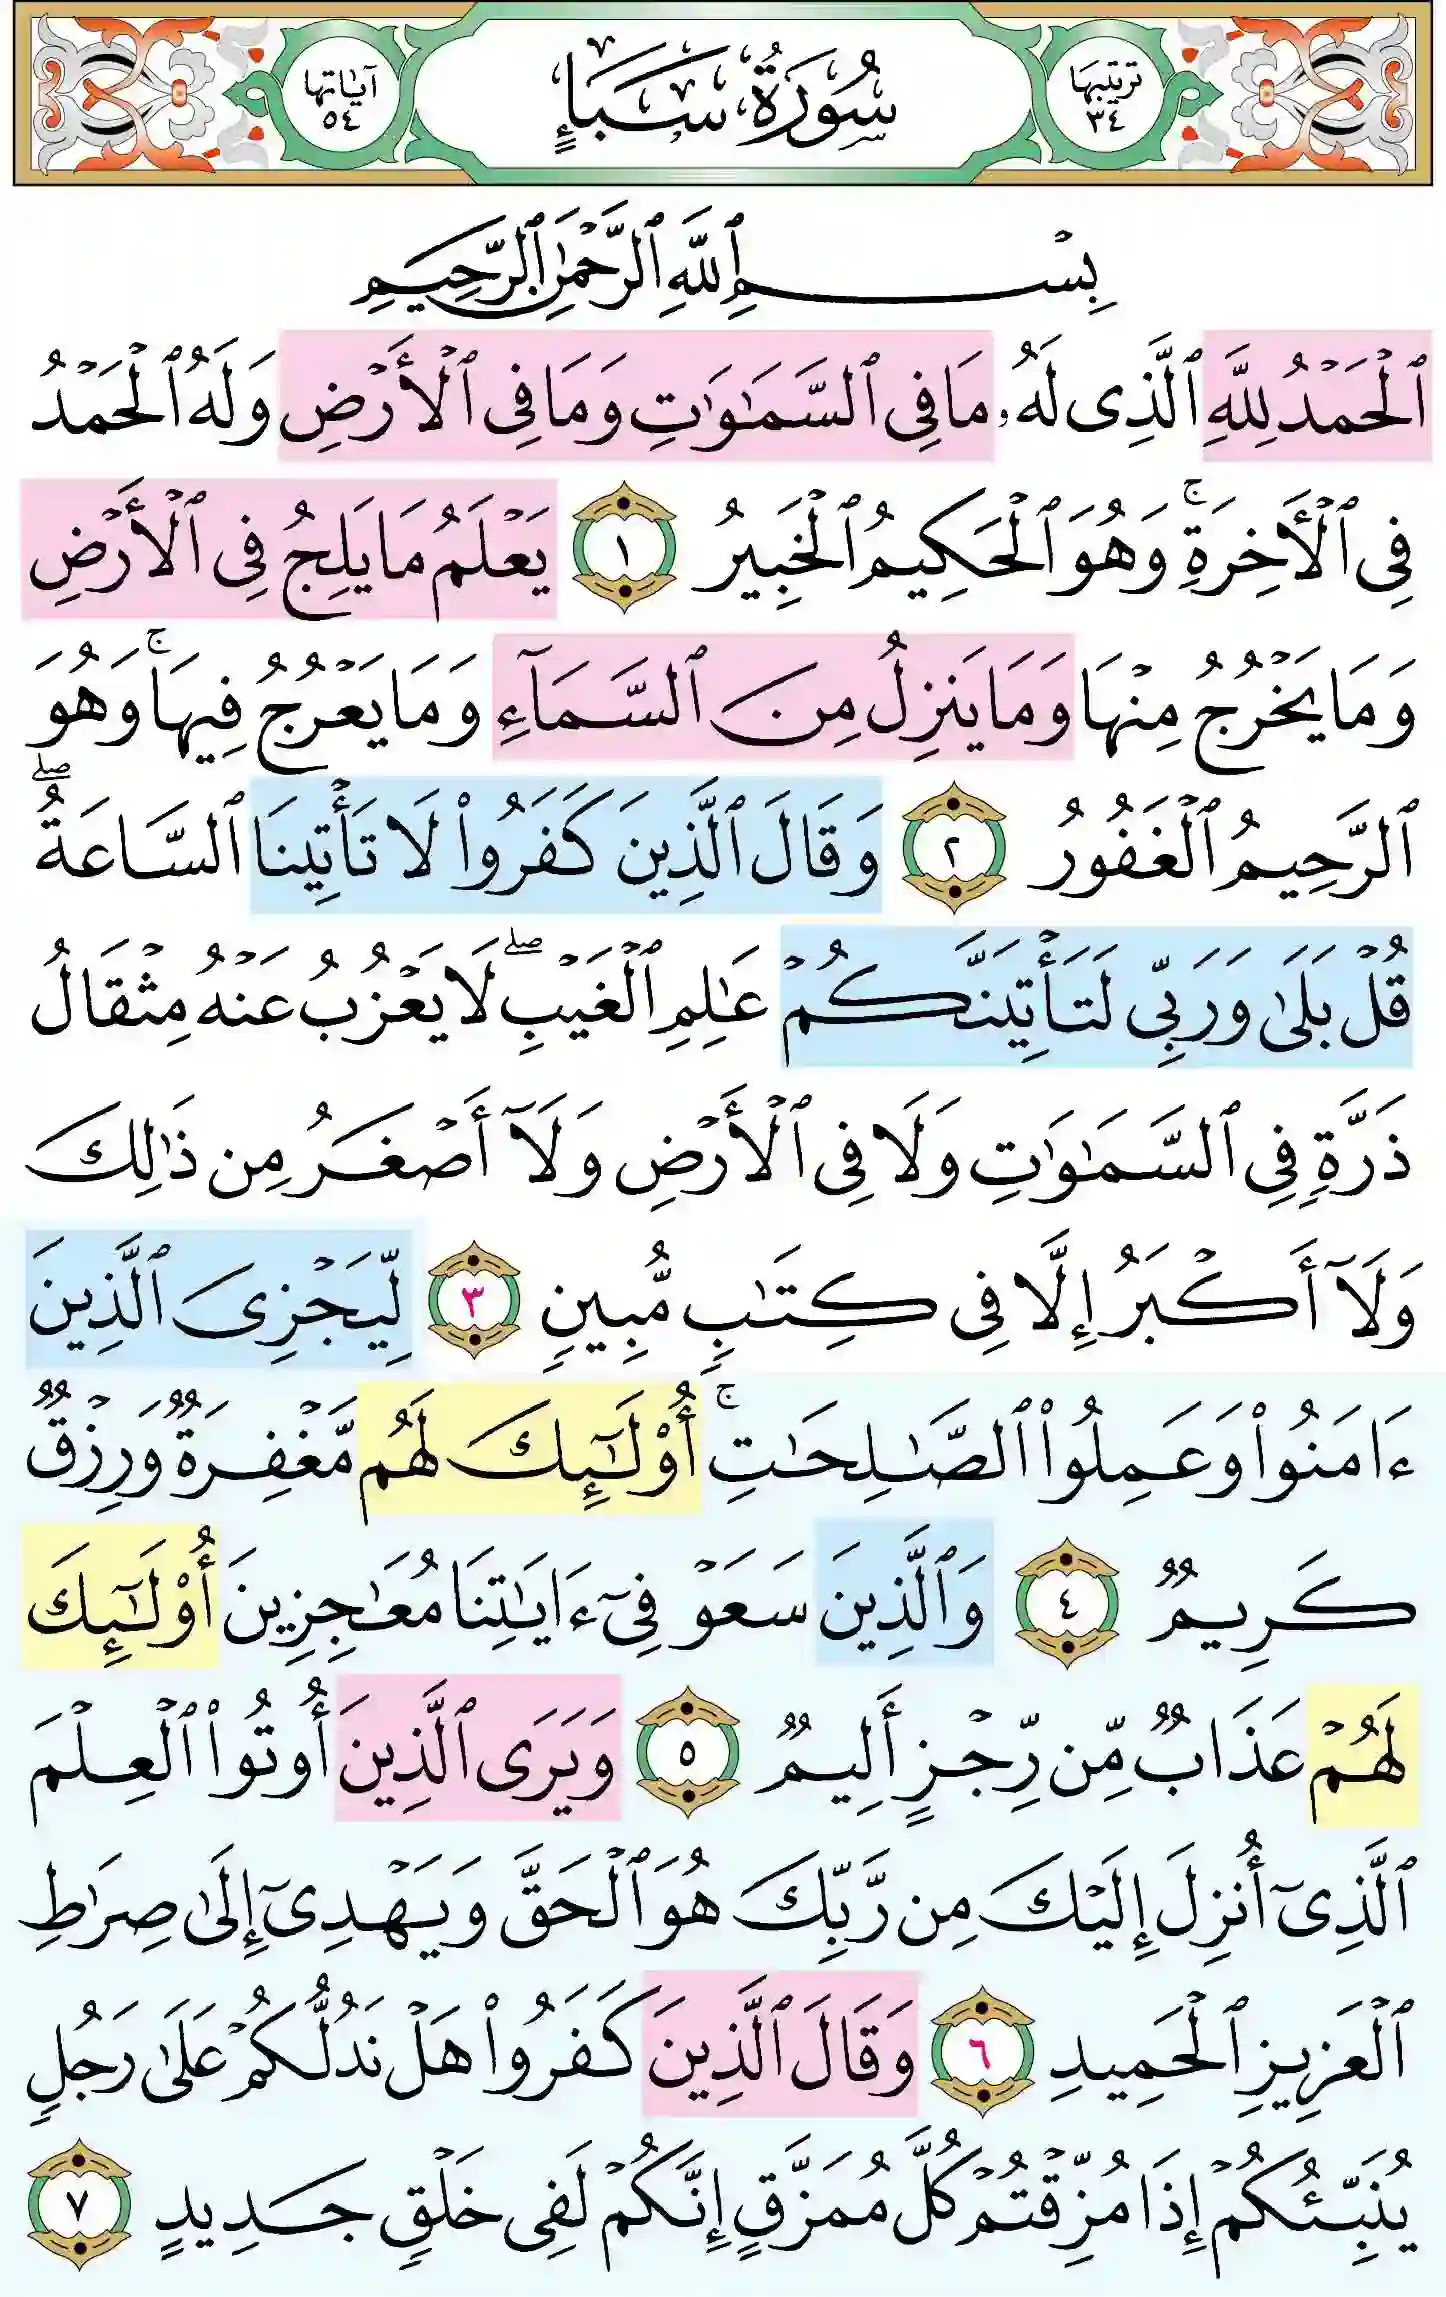 ترتيبها
٣٤
سُورَةُ سَبَإٍ
آياتها
٥٤
بِسْمِ ٱللَّهِ ٱلرَّحْمَٰنِ ٱلرَّحِيمِ
ٱلْحَمْدُ لِلَّهِ ٱلَّذِى لَهُۥ مَا فِى ٱلسَّمَٰوَٰتِ وَمَا فِى ٱلْأَرْضِ وَلَهُ ٱلْحَمْدُ
فِى ٱلْأَخِرَةِ ۚ وَهُوَ ٱلْحَكِيمُ ٱلْخَبِيرُ ١ يَعْلَمُ مَا يَلِجُ فِى ٱلْأَرْضِ
وَمَا يَخْرُجُ مِنْهَا وَمَا يَنزِلُ مِنَ ٱلسَّمَآءِ وَمَا يَعْرُجُ فِيهَا ۚ وَهُوَ
ٱلرَّحِيمُ ٱلْغَفُورُ ٢ وَقَالَ ٱلَّذِينَ كَفَرُوا۟ لَا تَأْتِينَا ٱلسَّاعَةُ ۖ
قُلْ بَلَىٰ وَرَبِّى لَتَأْتِيَنَّكُمْ عَٰلِمِ ٱلْغَيْبِ ۖ لَا يَعْزُبُ عَنْهُ مِثْقَالُ
ذَرَّةٍ فِى ٱلسَّمَٰوَٰتِ وَلَا فِى ٱلْأَرْضِ وَلَآ أَصْغَرُ مِن ذَٰلِكَ
وَلَآ أَكْبَرُ إِلَّا فِى كِتَٰبٍ مُّبِينٍ ٣ لِّيَجْزِىَ ٱلَّذِينَ
ءَامَنُوا۟ وَعَمِلُوا۟ ٱلصَّٰلِحَٰتِ ۚ أُو۟لَٰٓئِكَ لَهُم مَّغْفِرَةٌ وَرِزْقٌ
كَرِيمٌ ٤ وَٱلَّذِينَ سَعَوْ فِىٓ ءَايَٰتِنَا مُعَٰجِزِينَ أُو۟لَٰٓئِكَ
لَهُمْ عَذَابٌ مِّن رِّجْزٍ أَلِيمٌ ٥ وَيَرَى ٱلَّذِينَ أُوتُوا۟ ٱلْعِلْمَ
ٱلَّذِىٓ أُنزِلَ إِلَيْكَ مِن رَّبِّكَ هُوَ ٱلْحَقَّ وَيَهْدِىٓ إِلَىٰ صِرَٰطِ
ٱلْعَزِيزِ ٱلْحَمِيدِ ٦ وَقَالَ ٱلَّذِينَ كَفَرُوا۟ هَلْ نَدُلُّكُمْ عَلَىٰ رَجُلٍ
يُنَبِّئُكُمْ إِذَا مُزِّقْتُمْ كُلَّ مُمَزَّقٍ إِنَّكُمْ لَفِى خَلْقٍ جَدِيدٍ ٧